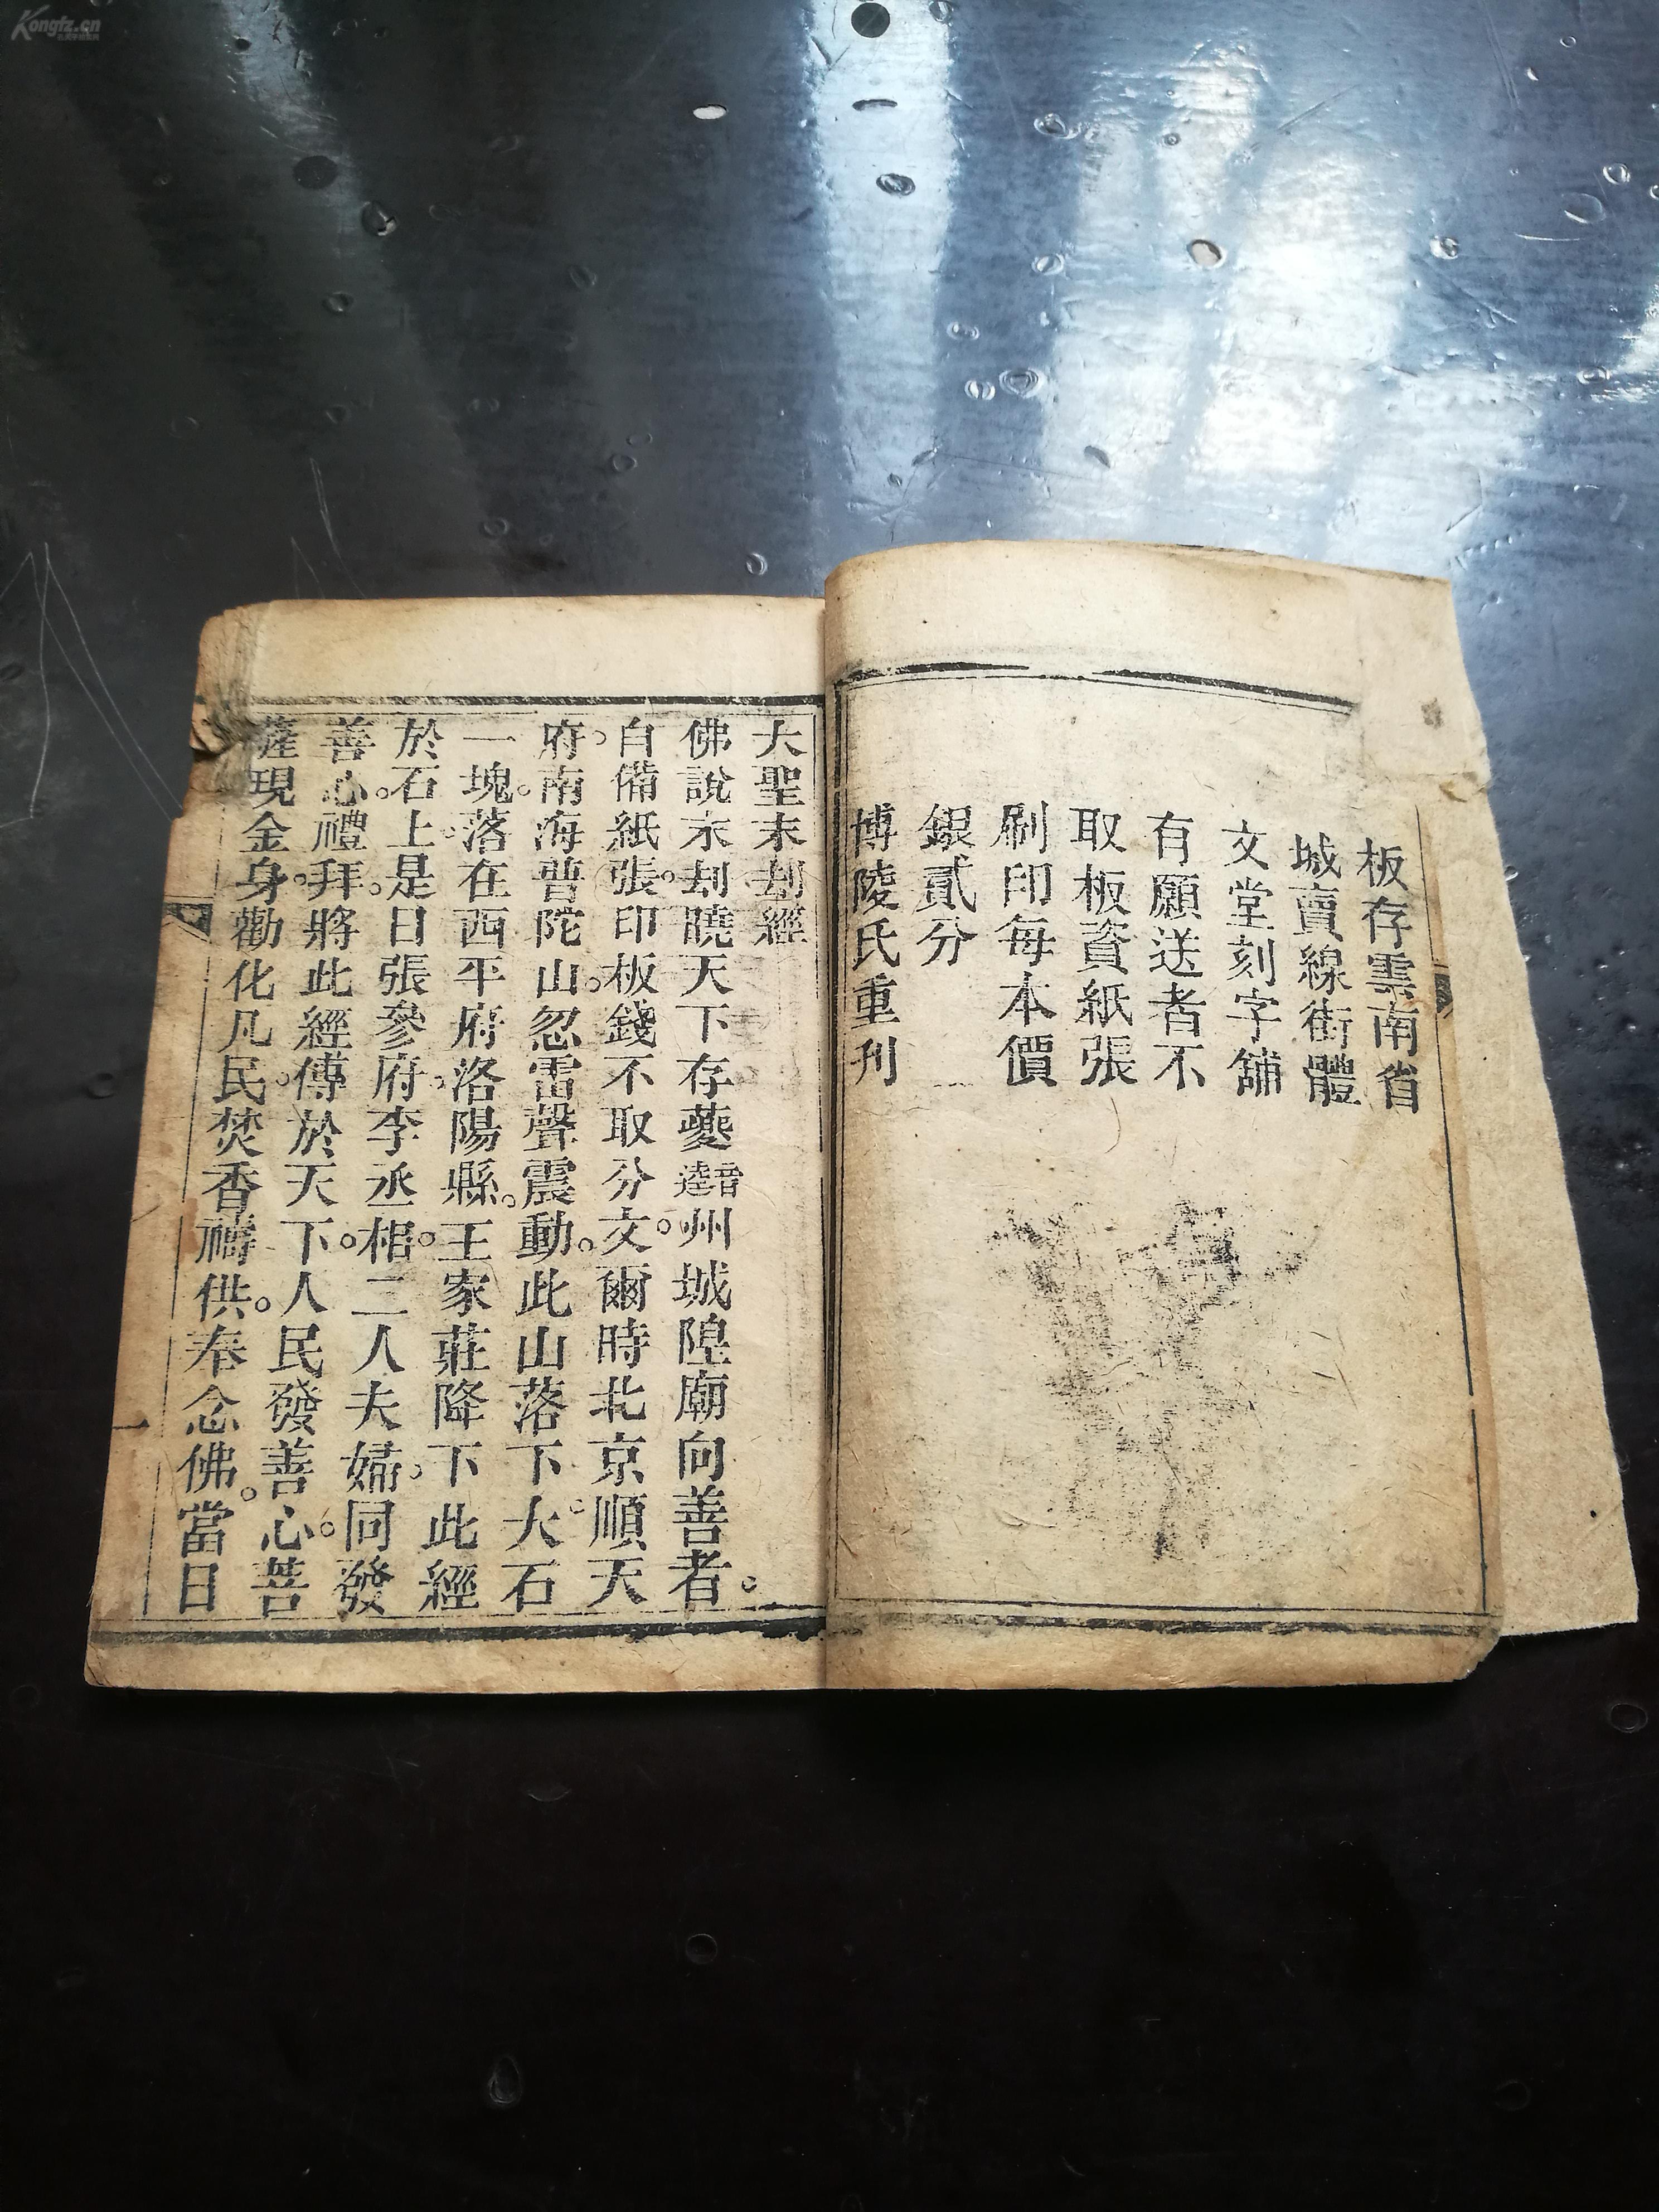 Kongfz.cn
板存雲南省
城賣線街體
文堂刻字舖
有願送者不
取板資紙張
刷印每本價
銀貳分
博陵氏重刊
大聖末刼經
佛說末刼曉天下存夔音逵州城隍廟向善者。
自備紙張。印板錢不取分文。爾時北京順天
府。南海普陀山。忽雷聲震動。此山落下大石
一塊。落在西平府洛陽縣。王家莊降下此經
於石上。是日張參府。李丞相。二人夫婦。同發
善心。禮拜。將此經傳於天下。人民發善心。菩
薩現金身。勸化凡民。焚香禱供。奉念佛。當日
一